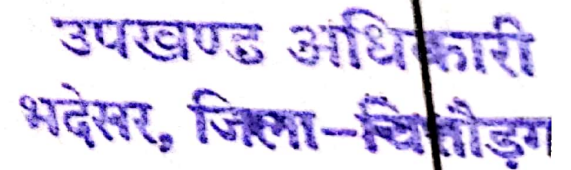 उपखण्ड अधिकारी
भदेसर, जिला-चित्तौड़ग